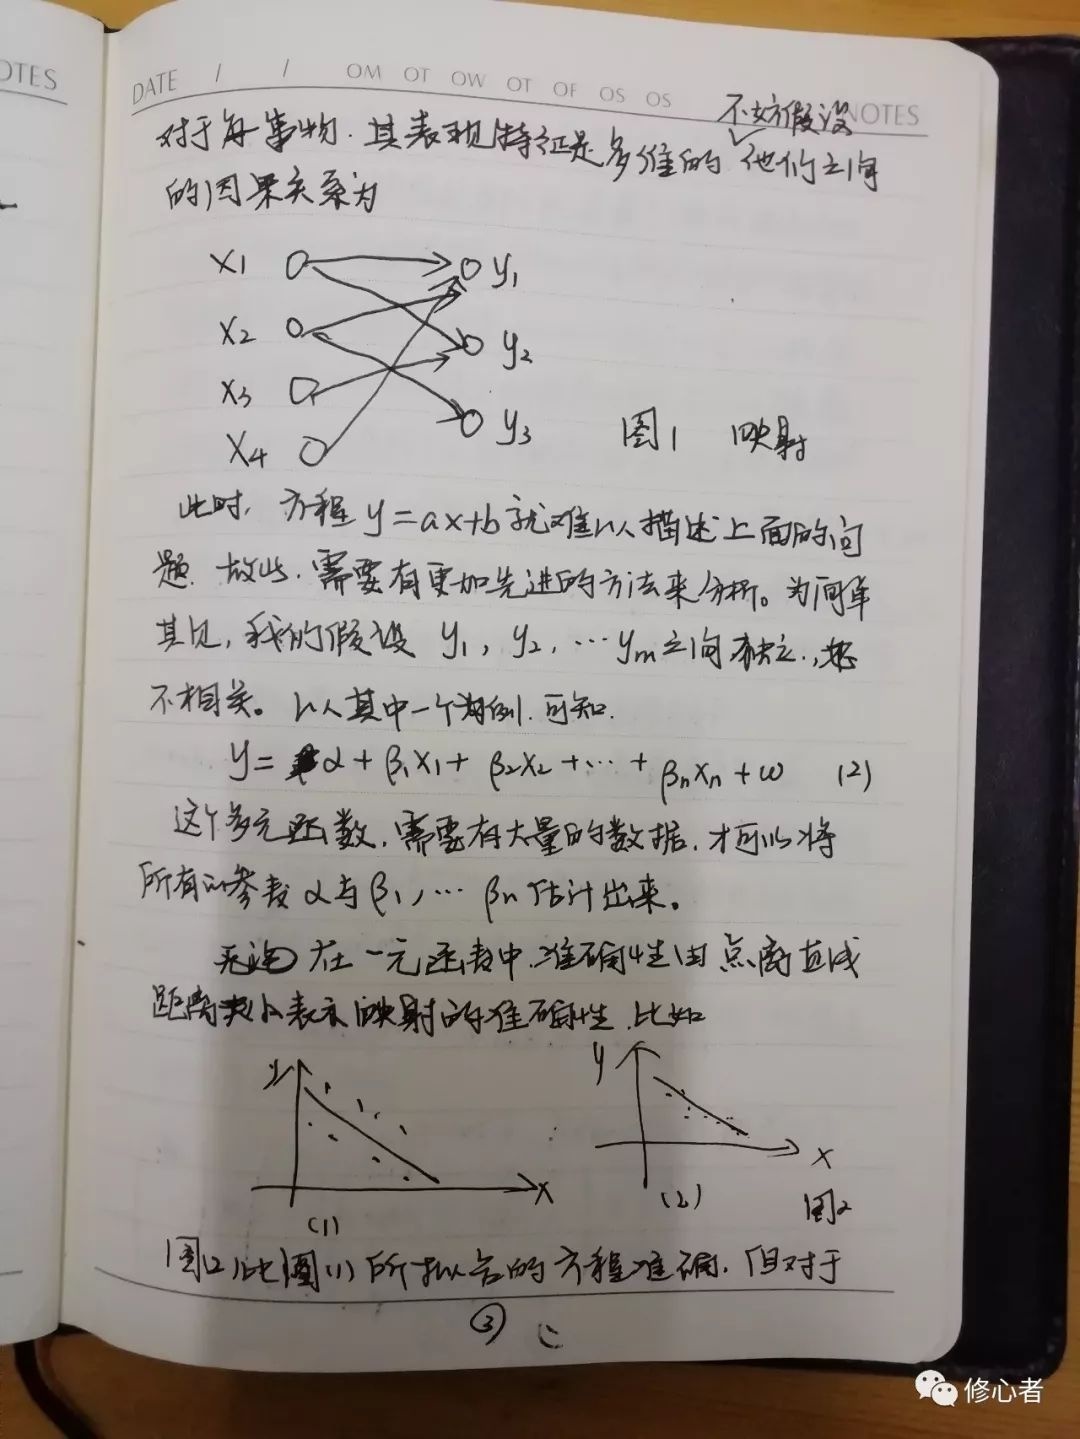 OTES
DATE / / OM OT OW OT OF OS OS NOTES
不妨假设
对于每事物.其表现特征是多维的 他们之间
的因果关系为
x1 y1
x2 y2
x3 y3
x4
图1 映射
此时,方程 y=ax+b 就难以描述上面的问
题.故此.需要有更加先进的方法来分析。为简单
其见,我们假设 y1, y2, …ym之间独立,
不相关。以其中一个为例.可知.
y= α + β1x1 + β2x2 +…+ βnxn + ω (2)
这个多元函数.需要有大量的数据.才可以将
所有的参数 α与β1,… βn 估计出来。
在一元函数中.准确性由点离直线
距离 表示映射的准确性.比如
y x
(1)
y x
(2) 图2
图(2)比图(1)所拟合的方程准确.但对于
③
修心者